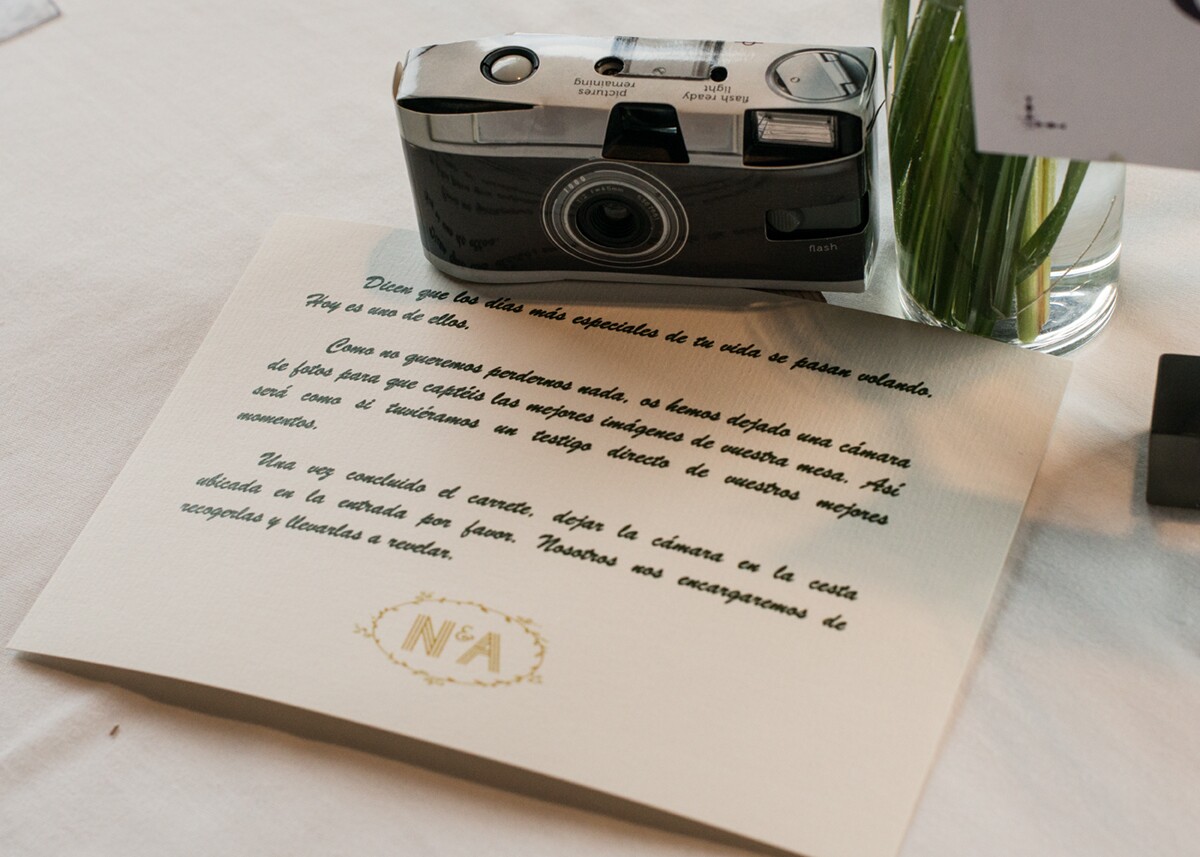 pictures
remaining
flash ready
light
flash
Dicen que los días más especiales de tu vida se pasan volando.
Hoy es uno de ellos.
Como no queremos perdernos nada, os hemos dejado una cámara
de fotos para que captéis las mejores imágenes de vuestra mesa. Así
será como si tuviéramos un testigo directo de vuestros mejores
momentos.
Una vez concluido el carrete, dejar la cámara en la cesta
ubicada en la entrada por favor. Nosotros nos encargaremos de
recogerlas y llevarlas a revelar.
N&A